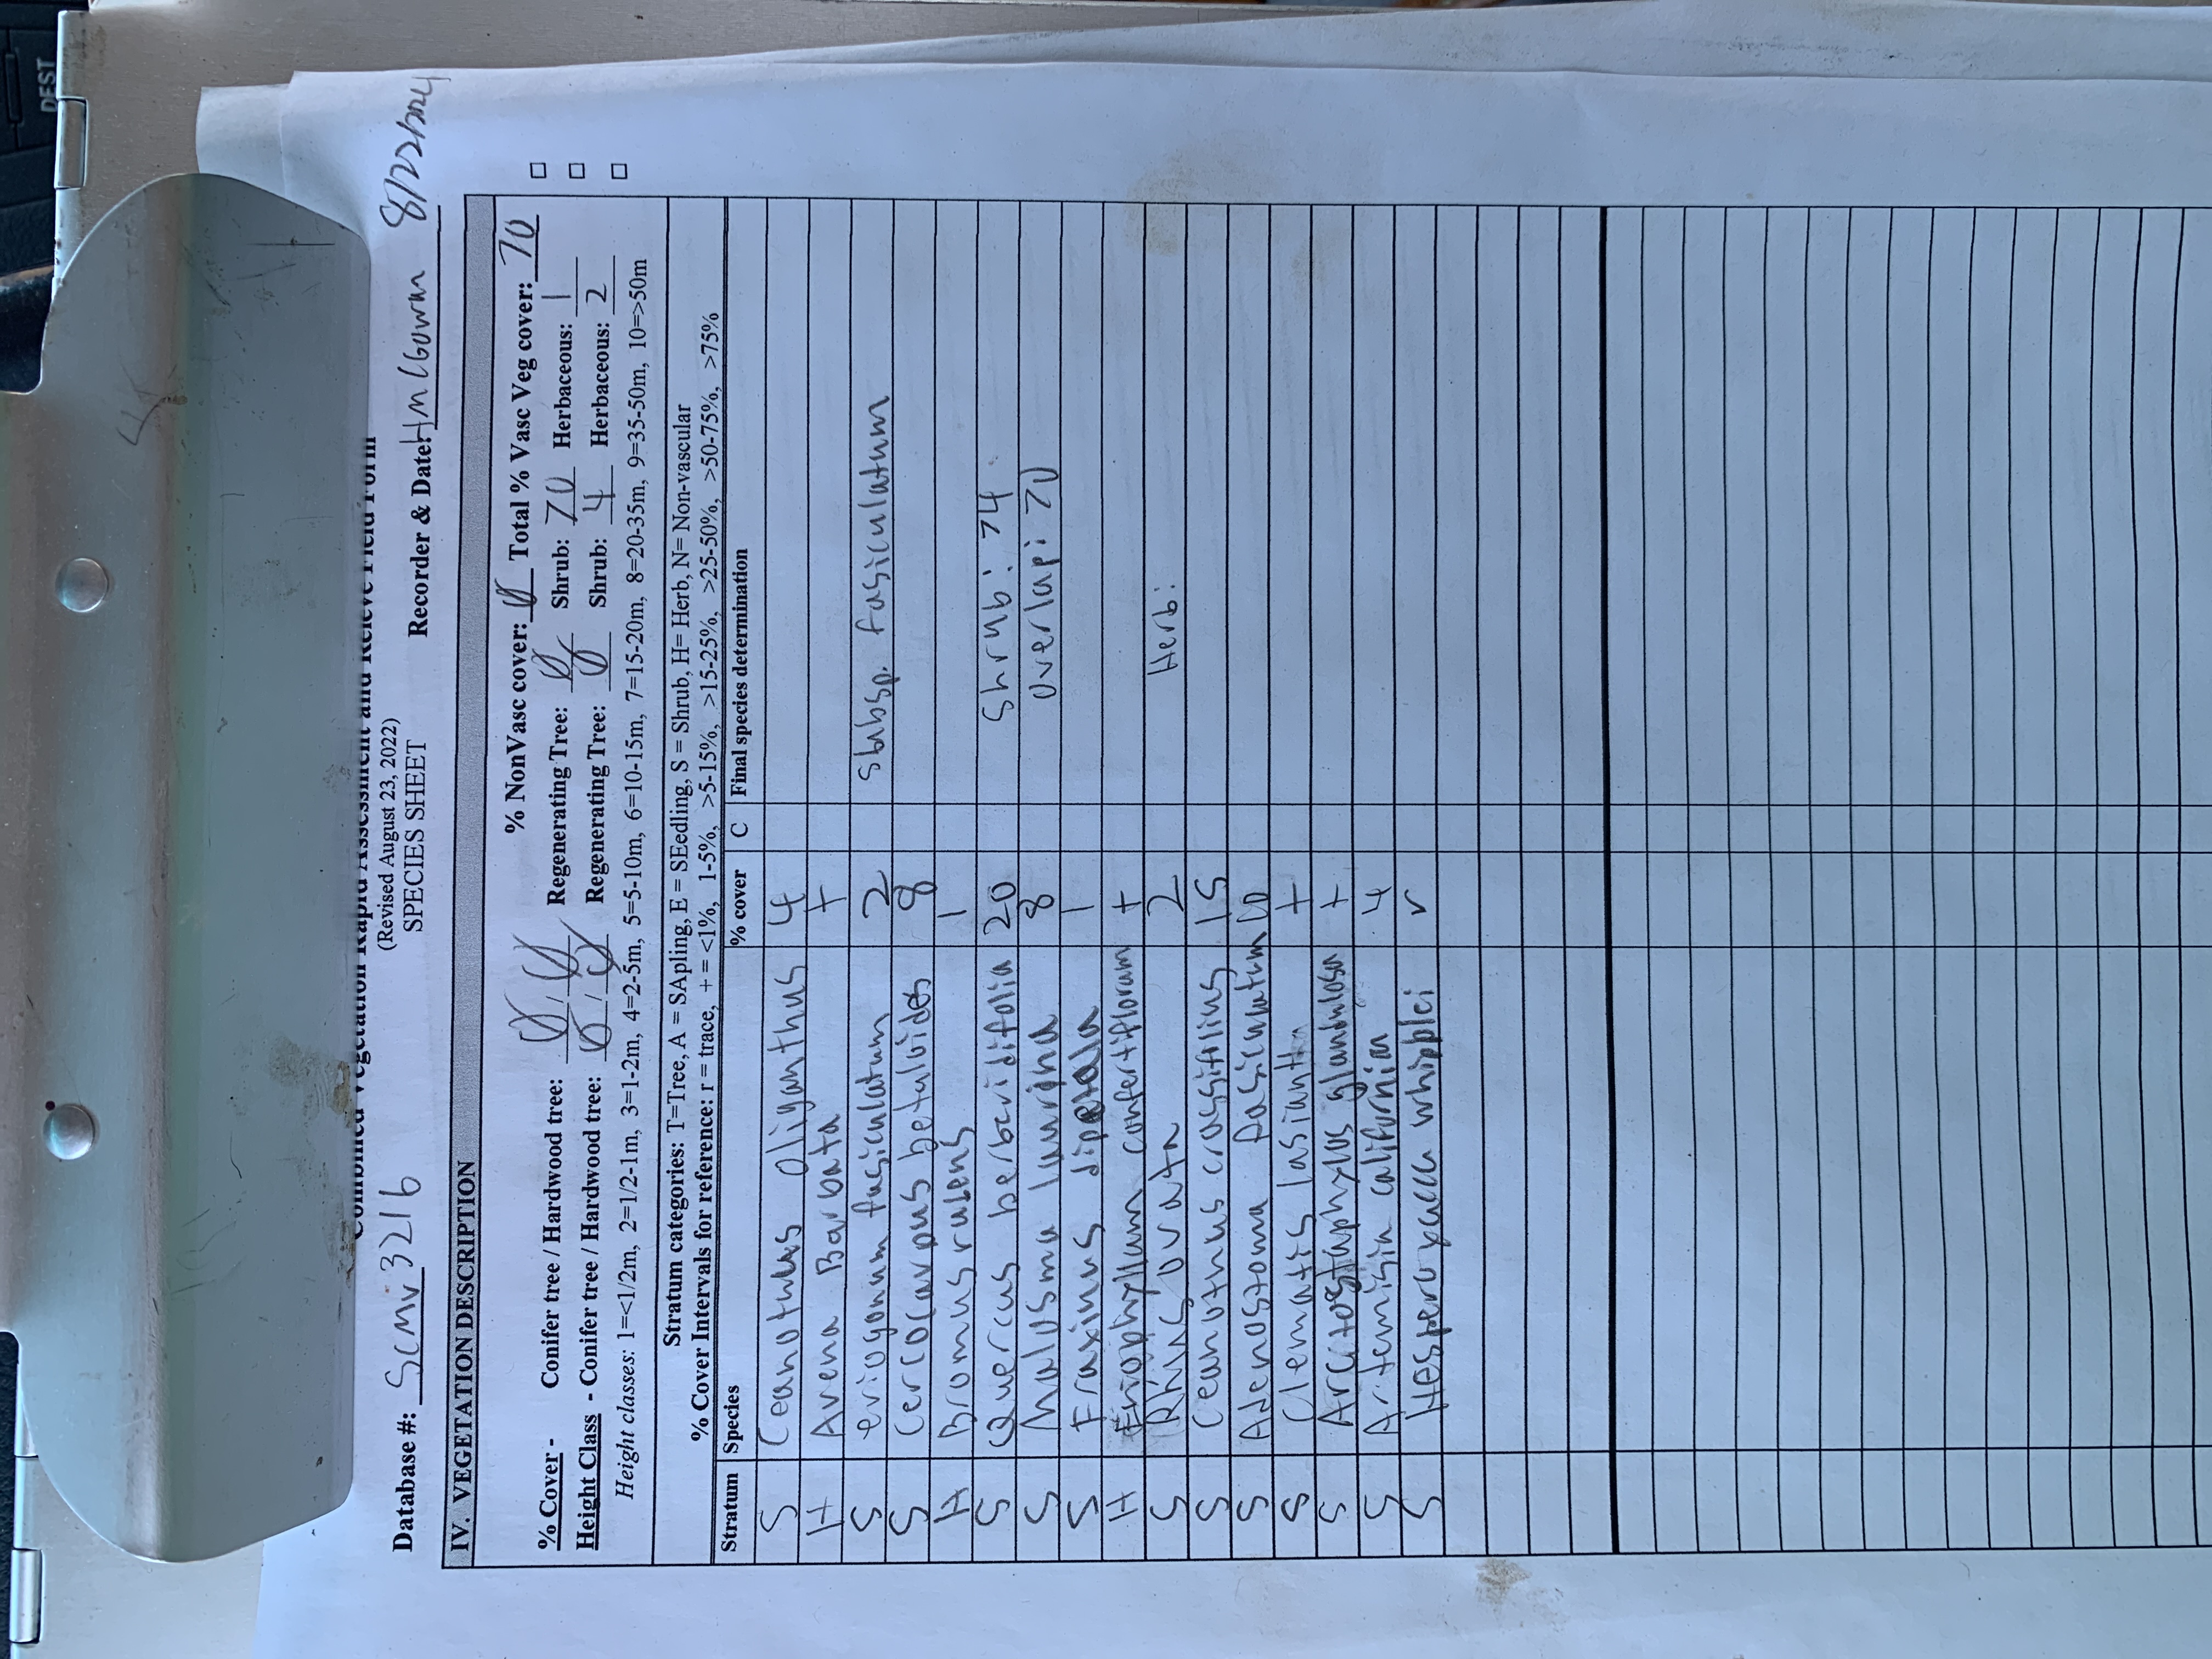 DEST
Combined Vegetation Rapid Assessment and Relevé Field Form
(Revised August 23, 2022)
SPECIES SHEET
Database #: SCMV3216 Recorder & Date: 8/22/2024
IV. VEGETATION DESCRIPTION
% NonVasc cover: Ø Total % Vasc Veg cover: 70
% Cover - Conifer tree / Hardwood tree: Ø / Ø Regenerating Tree: Ø Shrub: 70 Herbaceous: 1
Height Class - Conifer tree / Hardwood tree: Ø / Ø Regenerating Tree: Ø Shrub: 4 Herbaceous: 2
Height classes: 1=<1/2m, 2=1/2-1m, 3=1-2m, 4=2-5m, 5=5-10m, 6=10-15m, 7=15-20m, 8=20-35m, 9=35-50m, 10=>50m
Stratum categories: T=Tree, A = SApling, E = SEedling, S = Shrub, H= Herb, N= Non-vascular
% Cover Intervals for reference: r = trace, + = <1%, 1-5%, >5-15%, >15-25%, >25-50%, >50-75%, >75%
Stratum Species % cover C Final species determination
S Ceanothus oliganthus 4
H Avena Barbata +
S eriogonum fasiculatum 2 Subsp. fasiculatum
S Cercocarpus betuloides 8
H Bromus rubens 1
S Quercus berberidifolia 20 Shrub: 74
S Malosma laurina 8 Overlap: 70
S Fraxinus dipetala 1
H Eriophyllum confertiflorum +
S Rhus ovata 2 Herb:
S Ceanothus crassifolius 15
S Adenostoma fasiculatum 10
S Clematis lasianth +
S Arctostaphylos glandulosa +
S Artemisia californica 4
S Hesperoyucca whipplei r